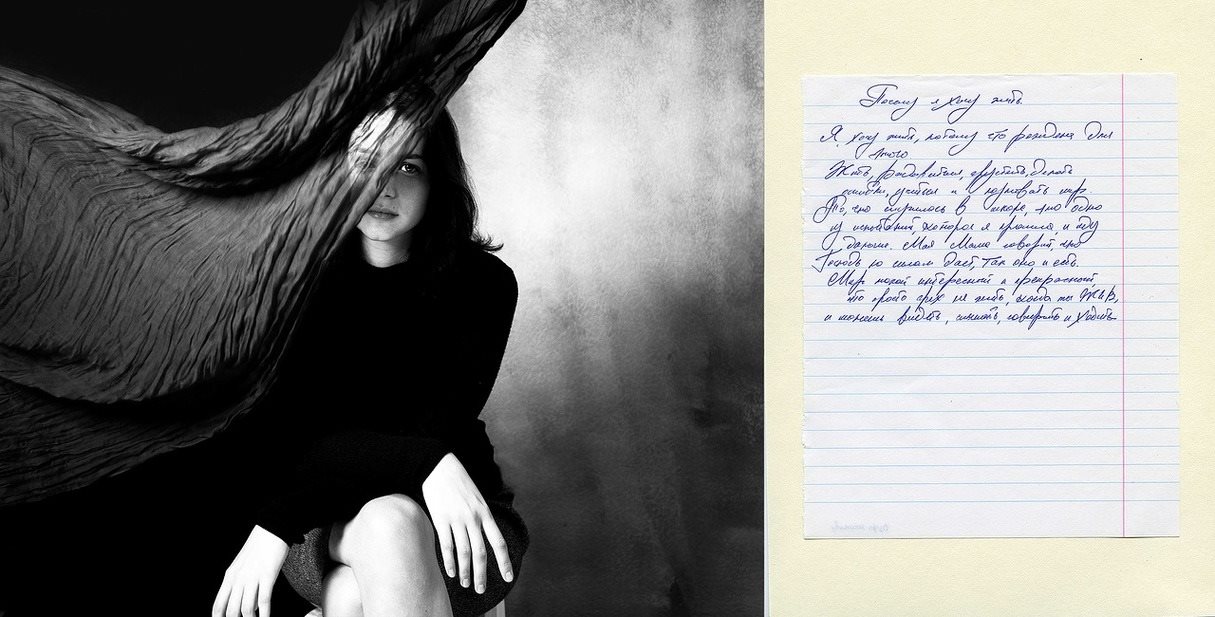 Почему я хочу жить.
Я хочу жить, потому что рождена для
этого
Жить, радоваться, грустить, делать
ошибки, учиться и познавать мир.
То, что случилось в школе, это одно
из испытаний, которое я прошла, и иду
дальше. Моя Мама говорит, что
Господь по силам даёт, так оно и есть.
Мир такой интересный и прекрасный,
что просто грех не жить, когда ты жив,
и можешь видеть, слышать, говорить и ходить